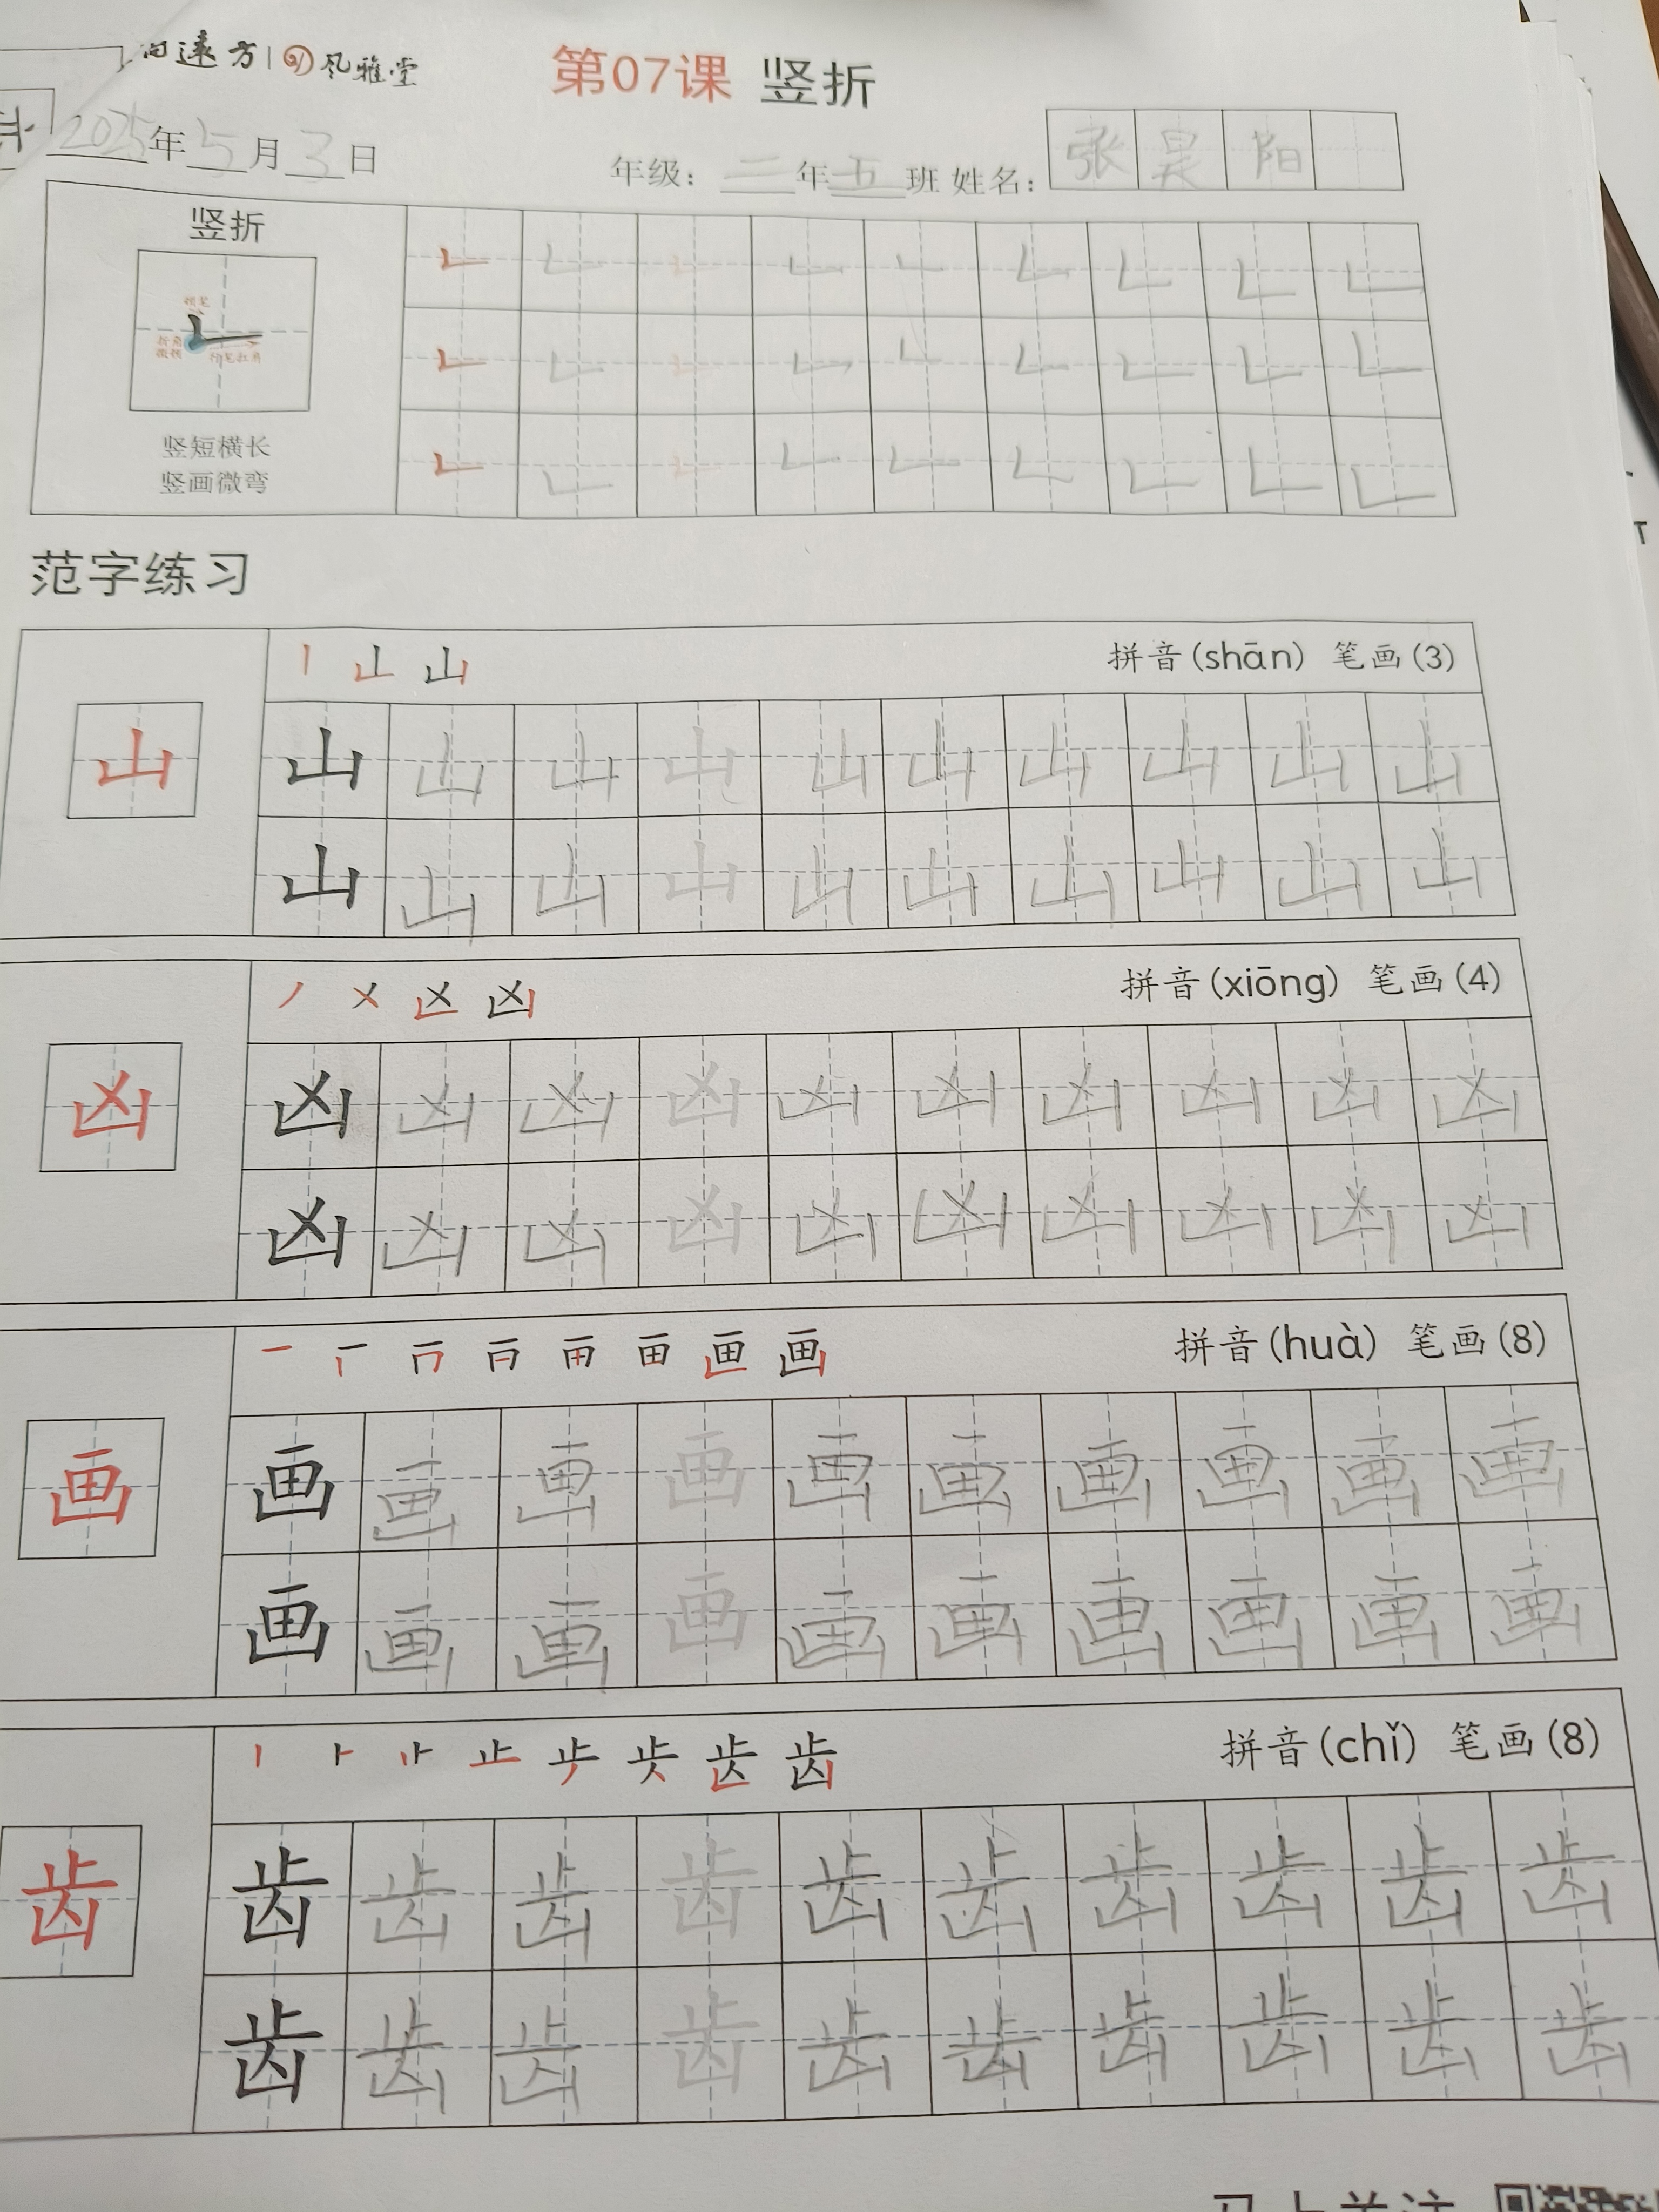 向遠方 | 风雅堂
第07课 竖折
2025年5月3日
年级：二年五班 姓名：张昊阳
竖折
顿笔
折角
竖短横长
竖画微弯
范字练习
山 拼音(shān) 笔画(3)
山
山 山 山 山 山 山 山 山 山 山
山 山 山 山 山 山 山 山 山 山
凶 拼音(xiōng) 笔画(4)
凶
凶 凶 凶 凶 凶 凶 凶 凶 凶 凶
凶 凶 凶 凶 凶 凶 凶 凶 凶 凶
画 拼音(huà) 笔画(8)
画
画 画 画 画 画 画 画 画 画 画
画 画 画 画 画 画 画 画 画 画
齿 拼音(chǐ) 笔画(8)
齿
齿 齿 齿 齿 齿 齿 齿 齿 齿 齿
齿 齿 齿 齿 齿 齿 齿 齿 齿 齿
马上关注